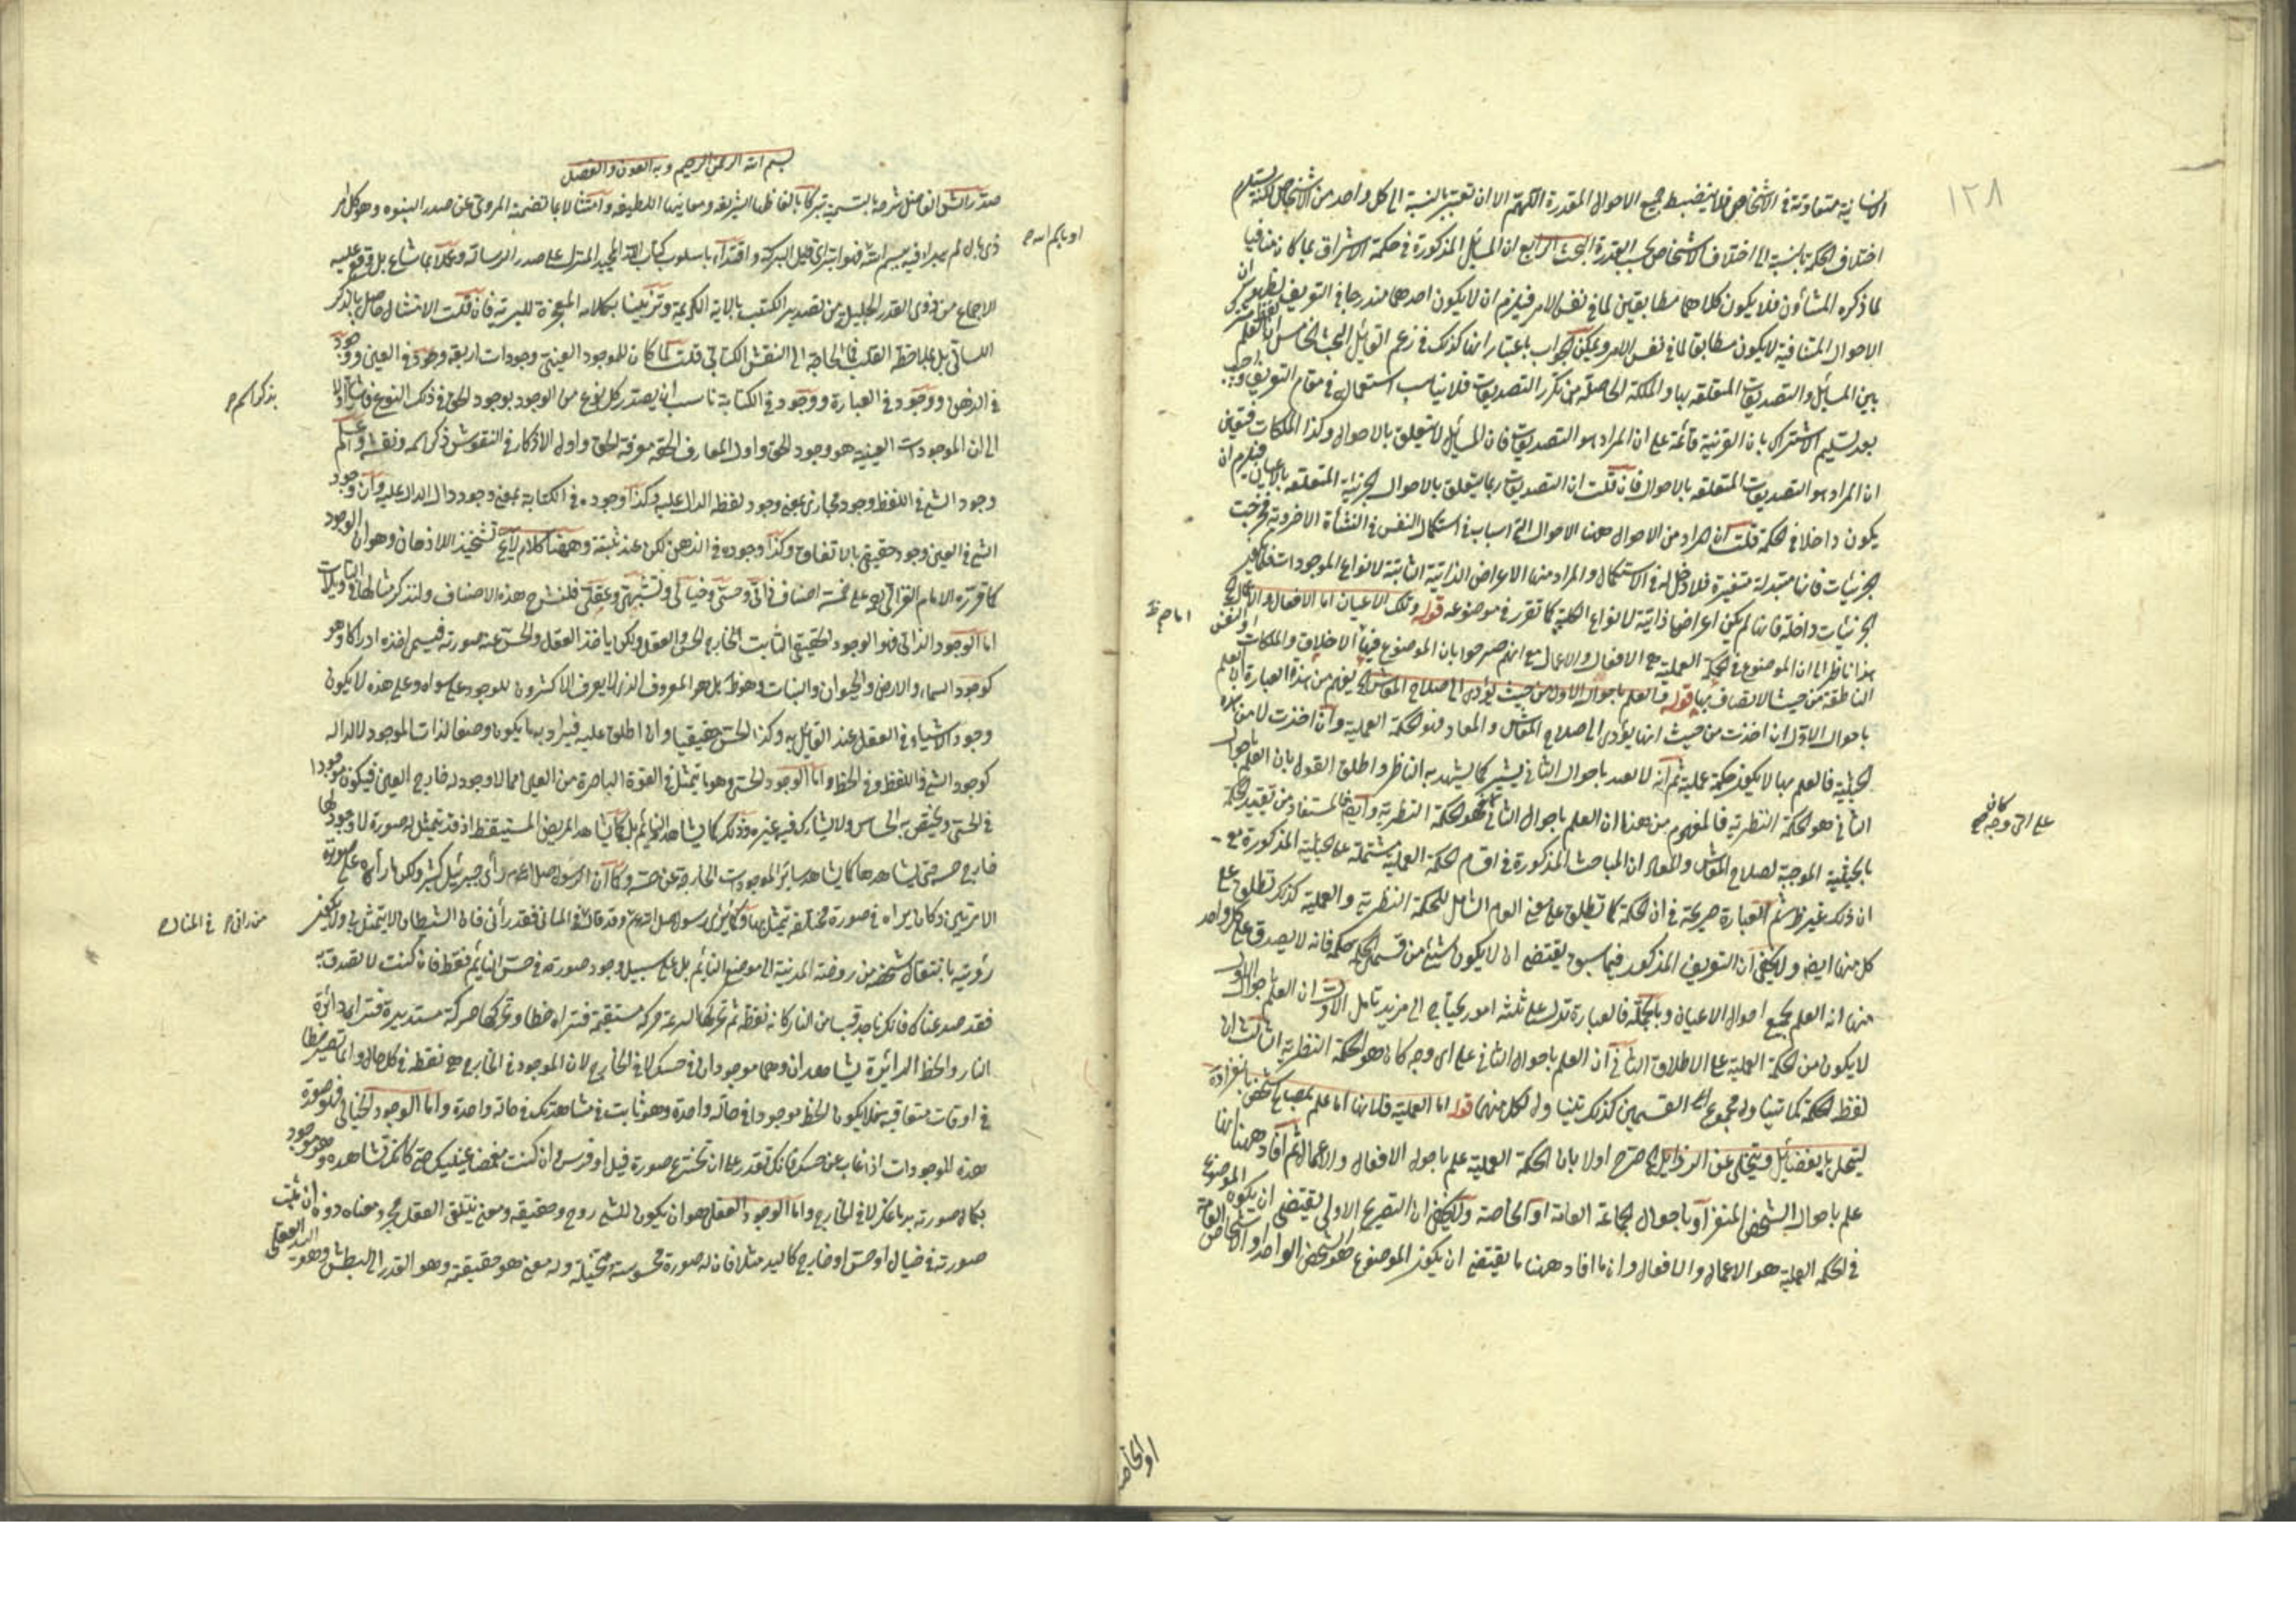 ١٢٨
الانسانية متفاوتة في الاشخاص فلا ينضبط جميع الاحوال المقدرة اللهم الا ان تعتبر بالنسبة الى كل واحد من الاشخاص لكنه يستلزم
اختلاف الحكمة بالنسبة الى اختلاف الاشخاص بحسب القدرة البحث الرابع ان المسائل المذكورة في حكمة الاشراق مما كان منافيا
لما ذكره المشاؤن فلا يكون كلاهما مطابقين لما في نفس الامر فيلزم ان لا يكون احدهما مندرجا في التعريف لظهور ان
الاحوال المتنافية لا يكون مطابقا لما في نفس الامر ويمكن الجواب باعتبار انها كذلك في زعم القائل البحث الخامس ان لفظ العلم مشترك
بين المسائل والتصديقات المتعلقة بها والملكة الحاصلة من تكرر التصديقات فلا يناسب استعماله في مقام التعريف
بعد تسليم الاشتراك بان القرينة قائمة على ان المراد هو التصديقات فان المسائل لا يتعلق بالاحوال وكذا الملكات فتعين
ان المراد هو التصديقات المتعلقة بالاحوال فان قلت ان التصديقات ربما يتعلق بالاحوال الجزئية المتعلقة بالاعيان فيلزم ان
يكون داخلا في الحكمة قلت ان المراد من الاحوال ههنا الاحوال التي اسباب في استكمال النفس في النشأة الاخروية فخرجت
الجزئيات فانها متبدلة متغيرة فلا دخل له في الاستكمال والمراد منها الاعراض الذاتية الثابتة لانواع الموجودات
الجزئيات داخلة فانها لم يكن اعراضا ذاتية للانواع الكلية كما تقرر في موضوعه قوله وتلك الاعيان اما الافعال والاعمال
هذا ناظر الى ان الموضوع في الحكمة العملية هي الافعال والاعمال مع انهم صرحوا بان الموضوع فيها الاخلاق والملكات او النفس
الناطقة من حيث الاتصاف بها قوله فالعلم باحوال الاول من حيث يؤدي الى صلاح المعاش يفهم من هذه العبارة ان العلم
باحوال الاول ان اخذت من حيث انها يؤدي الى صلاح المعاش والمعاد فهو الحكمة العملية وان اخذت لا من هذه
الحيثية فالعلم بها لا يكون حكمة عملية ثم انه لا يعد باحوال الثاني يشير كما يشهد به الناظر واطلق القول بان العلم باحوال
الثاني هو الحكمة النظرية فالمفهوم من هذا ان العلم باحوال الثاني هو الحكمة النظرية وايضا المستفاد من تقييد الحكمة
بالحيثية الموجبة لصلاح المعاش والمعاد ان المباحث المذكورة في اقسام الحكمة العملية مشتملة على الحيثية المذكورة مع
ان ذلك غير ظاهر ثم العبارة صريحة في ان الحكمة كما تطلق على معنى العام الشامل للحكمة النظرية والعملية كذلك تطلق على
كل منها ايضا ولا يخفى ان التعريف المذكور فيما سبق يقتضي ان لا يكون شيئ من قسمي الحكمة حكمة فانه لا يصدق على كل واحد
منها انه العلم بجميع احوال الاعيان وبالجملة فالعبارة تدل على ثلثة امور يحتاج الى مزيد تامل الاول ان العلم باحوال الاول
لا يكون من الحكمة العملية على الاطلاق الثاني ان العلم باحوال الثاني على اي وجه كان هو الحكمة النظرية الثالث ان
لفظ الحكمة كما تتناول مجموع القسمين كذلك تتناول لكل منها قوله اما العملية فلانها اما علم بمصالح شخص بانفراده
ليتحلى بالفضائل ويتخلى عن الرذايل صرح اولا بان الحكمة العملية علم باحوال الافعال والاعمال ثم افاد ههنا انها
علم باحوال الشخص المنفرد او باحوال الجماعة العامة او الخاصة ولا يخفى ان التصريح الاولى يقتضي ان يكون الموضوع
في الحكمة العملية هو الاعمال والافعال وان ما افاد ههنا ما يقتضي ان يكون الموضوع هو الشخص الواحد او الاشخاص العامة
او الخاصة
على اي وجه كان
بسم الله الرحمن الرحيم وبه العون والفضل
صدر الش الفاضل شرحه بالتسمية تبركا بالفاظها الشريفة ومعانيها اللطيفة وامتثالا بما تضمنه المروي عن صدر النبوة وهو كل امر
ذي بال لم يبدا فيه بسم الله فهو ابتر اي قليل البركة واقتداء باسلوب كتاب الله المجيد المنزل على صدر الرسالة وعملا بما شاع بل وقع عليه
الاجماع من ذوي القدر الجليل من تصدير الكتب بالاية الكريمة وتزيينا بكلامه المعجزة للبرية فان قلت الامتثال حاصل بالذكر
اللساني بل بملاحظة القلب فما الحاجة الى النقش الكتابي قلت لما كان للموجود العيني وجودات اربعة وجود في العين ووجود
في الذهن ووجود في العبارة ووجود في الكتابة ناسب ان يصدر كل نوع من الوجود بوجود الحق في ذلك النوع
الى ان الموجودات العينية هو وجود الحق واول المعارف الحقة معرفة الحق واول الاذكار في النقوش ذكر اسمه ونقشه
وجود الشيء في اللفظ وجود مجازي بمعنى وجود لفظه الدال عليه وكذا وجوده في الكتابة بمعنى وجود دال الدال عليه وان وجود
الشيء في العين وجود حقيقي بالاتفاق وكذا وجوده في الذهن لكن عند مثبته وههنا كلام لا يخ تشحيذ للاذهان وهو ان الوجود
كما قرره الامام الغزالي ره على خمسة اصناف ذاتي وحسي وخيالي وشبهي وعقلي فلنشرح هذه الاصناف ولنذكر مثالها في التاويلات
اما الوجود الذاتي فهو الوجود الحقيقي الثابت الخارج الحس والعقل ولكن ياخذ العقل والحس عنه صورته فيسمى اخذه ادراكا وهو
كوجود السماء والارض والحيوان والنبات وهو ظ بل هو المعروف الذي لا يعرف الاكثرون للوجود معنى سواه وعلى هذه لا يكون
وجود الاشياء في العقل عند القائل به وكذا الحس حقيقيا وان اطلق عليه فيراد به ما يكون وصفا لذات الموجود لا لداله
كوجود الشيء في اللفظ وفي الخط واما الوجود الحسي وهو ما يتمثل في القوة الباصرة من العين مما لا وجود له خارج العين فيكون موجودا
في الحس ويختص به الحاس ولا يشاركه فيه غيره وذلك كما يشاهد النائم بل كما يشاهد المريض المستيقظ اذ قد يتمثل له صورة لا وجود لها
خارج حسه حتى يشاهدها كما يشاهد سائر الموجودات الخارجة عن حسه وكما ان الرسول صلى الله عم رأى جبرئيل كثيرا ولكن ما رأه على صورته
الا مرتين وكان يراه في صورة مختلفة يتمثل بها وكما يرى رسول الله صلعم وقد قال من راني في المنام فقد رأني فان الشيطان لا يتمثل بي ولا يكون
رؤيته بانتقال شخصه من روضة المدينة الى موضع النائم بل على سبيل وجود صورته في حس النائم فقط فان كنت لا تصدق به
فقد صدعناك فانك تاخذ قبسا من النار كانه نقطة ثم تحركها بسرعة حركة مستقيمة فتراه خطا وتحركها حركة مستديرة فتراه دائرة
النار والخط الدائرة يشاهدان وهما موجودان في حسك لا في الخارج لان الموجود في الخارج هي نقطة في كل حال وانما تصير خطا
في اوقات متعاقبة فلا يكون الخط موجودا في حالة واحدة وهو ثابت في مشاهدتك في حالة واحدة واما الوجود الخيالي فهو صورة
هذه الموجودات اذا غاب عن حسك فانك تقدر على ان تخترع صورة فيل او فرس وان كنت مغمضا عينيك حتى كانك تشاهده وهو موجود
بكمال صورته بدماغك لا في الخارج واما الوجود العقلي هو ان يكون للشيء روح وحقيقة ومعنى فيتلقى العقل مجرد معناه دون ان يثبت
صورته في خيال او حس او خارج كاليد مثلا فان له صورة محسوسة ومتخيلة وله معنى هو حقيقته وهو القدر الى البطش وهو اليد العقلي
من راني في المنام